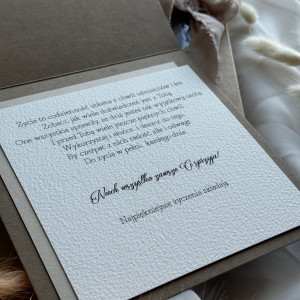 Życie to codzienność utkana z chwil uśmiechów i łez
Zobacz, jak wiele doświadczeń jest z Tobą
One wszystkie sprawiły, że dziś jesteś tak wyjątkową osobą
I przed Tobą wiele jeszcze pięknych chwil
Wykorzystaj i słońce, i deszcz do tego
By czerpać z nich radość, siłę i odwagę
Do życia w pełni, każdego dnia.
Niech wszystko zawsze Ci sprzyja!
Najpiękniejsze życzenia składają